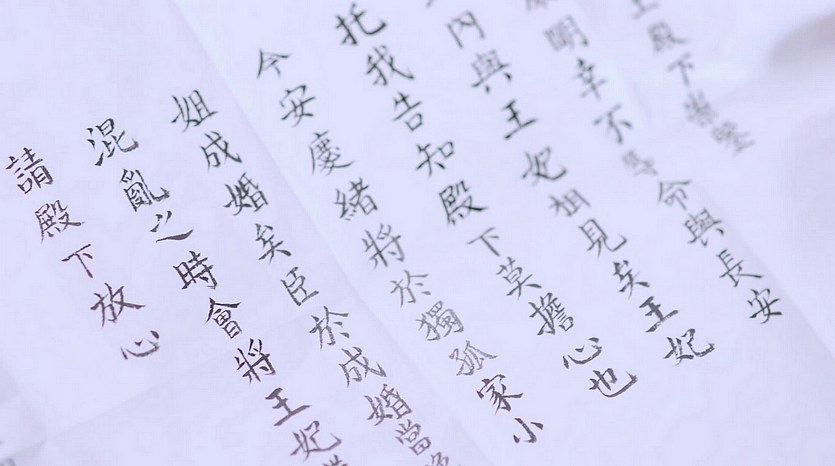 殿下
明幸不辱命與長安
內與王妃相見矣王妃
托我告知殿下莫擔心也
今安慶緒將於獨孤家小
姐成婚矣臣於成婚當晚
混亂之時會將王妃
請殿下放心